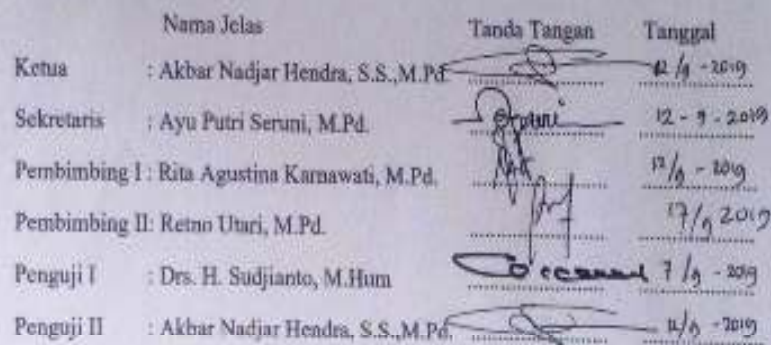 Nama Jelas Tanda Tangan Tanggal
Ketua : Akbar Nadjar Hendra, S.S.,M.Pd. 12/9 - 2019
Sekretaris : Ayu Putri Seruni, M.Pd. 12 - 9 - 2019
Pembimbing I : Rita Agustina Karnawati, M.Pd. 12/9 - 2019
Pembimbing II: Retno Utari, M.Pd. 17/9 2019
Penguji I : Drs. H. Sudjianto, M.Hum 7/9 - 2019
Penguji II : Akbar Nadjar Hendra, S.S.,M.Pd. /9 - 2019